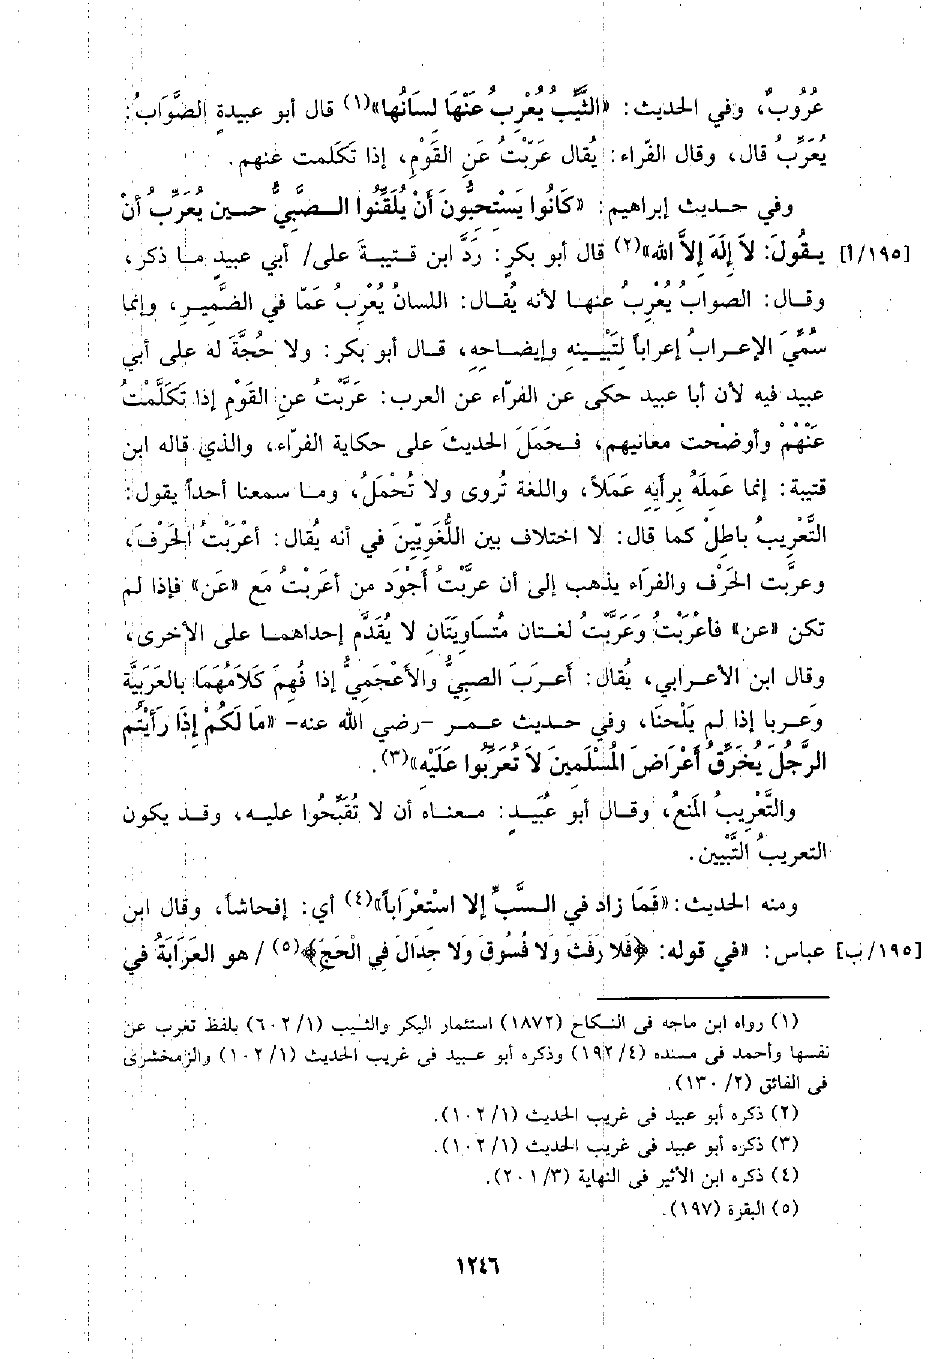 عُرُوبٌ، وفي الحديث: «الثَّيِّبُ يُعْرِبُ عَنْهَا لسَانُها»(١) قال أبو عبيدةِ الصَّوَابُ:
يُعَرِّبُ قال، وقال الفّراء: يُقال عَرّبْتُ عَنِ القَوْمِ، إذا تَكَلمت عنهم.
وفي حديث إبراهيم: «كَانُوا يَسْتَحِبُّونَ أَنْ يُلَقِّنُوا الصَّبِيُّ حين يُعَرِّبُ أنْ
[١٩٥/أ] يقُولَ: لاَ إِلَهَ إلاَّ الله»(٢) قال أبو بكرٍ: رَدَّ ابن قتيبةَ على/ أبي عبيدٍ ما ذكر،
وقال: الصوابُ يُعْرِبُ عنها لأنه يُقال: اللسانُ يُعْرِبُ عَمّا في الضَّميرِ، وإنما
سُمِّيَ الإعرابُ إعراباً لتَبْيينِه وإيضاحِهِ، قال أبو بكر: ولا حُجَّةَ له على أبي
عبيد فيه لأن أبا عبيد حكى عن الفرّاء عن العرب: عَرَّبْتُ عنِ القَوْمِ إذا تَكَلَّمْتُ
عَنْهُمْ وأوضْحت معانيهم، فحَمَلَ الحديثَ على حكاية الفرّاء، والذي قاله ابن
قتيبة: إنما عَمِلَهُ برأيِهِ عَمَلاً، واللغة تُروى ولا تُحْمَلُ، وما سمعنا أحداً يقول:
التَّعْرِيبُ باطِلْ كما قال: لا اختلاف بين اللُّغَوِيِّينَ في أنه يُقال: أعْرَبْتُ الحَرْفَ،
وعرَّبت الحَرْف والفرّاء يذهب إلى أن عرَّبْتُ أجْوَد من أعرَبْتُ مَع «عَن» فإذا لم
تكن «عن» فأعْرَبْتُ وَعَرَّبْتُ لغتان مُتسَاوِيَتَانِ لا يُقدَّم إحداهما على الأخرى،
وقال ابن الأعرابي، يُقال: أعرَبَ الصبيُّ والأعْجَميُّ إذا فُهِمَ كَلاَمُهُمَا بالعَرَبَيَّة
وَعربا إذا لم يَلْحنَا، وفي حديث عمر -رضي الله عنه- «مَا لَكُمْ إذَا رَأَيْتُم
الرَّجُلَ يُخَرِّقُ أَعْرَاضَ المُسْلَمِينَ لاَ تُعَرِّبُوا عَلَيْه»(٣).
والتَّعْرِيبُ المَنعُ، وقال أبو عُبَيدٍ: معناه أن لا تُقَبِّحُوا عليه، وقد يكون
التعريبُ التَّبْيين.
ومنه الحديث: «فَمَا زاد في السَّبِّ إلا استعْرَاباً»(٤) أي: إفحاشاً، وقال ابن
[١٩٥/ب] عباس: «في قوله: ﴿فَلا رَفَثَ وَلا فُسُوقَ وَلا جِدَالَ فِي الْحَجّ﴾(٥) / هو العَرَابَةُ في
(١) رواه ابن ماجه فى النكاح (١٨٧٢) استثمار البكر والثيب (١/ ٦٠٢) بلفظ تعرب عن
نفسها وأحمد فى مسنده (٤/ ١٩٢) وذكره أبو عبيد فى غريب الحديث (١/ ١٠٢) والزمخشرى
فى الفائق (٢/ ١٣٠).
(٢) ذكره أبو عبيد فى غريب الحديث (١/ ١٠٢).
(٣) ذكره أبو عبيد فى غريب الحديث (١/ ١٠٢).
(٤) ذكره ابن الأثير فى النهاية (٣/ ٢٠١).
(٥) البقرة (١٩٧).
١٢٤٦